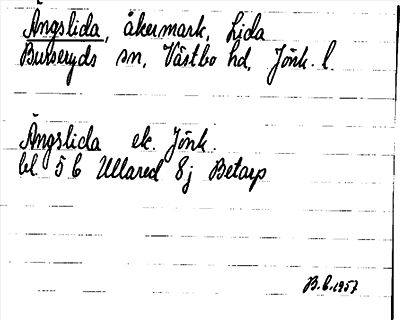 Ängslida, åkermark, Lida
Burseryds sn, Västbo hd, Jönk. l.
Ängslida ek. Jönk.
bl. 5 C Ullared 8j Betarp
B.C. 1957